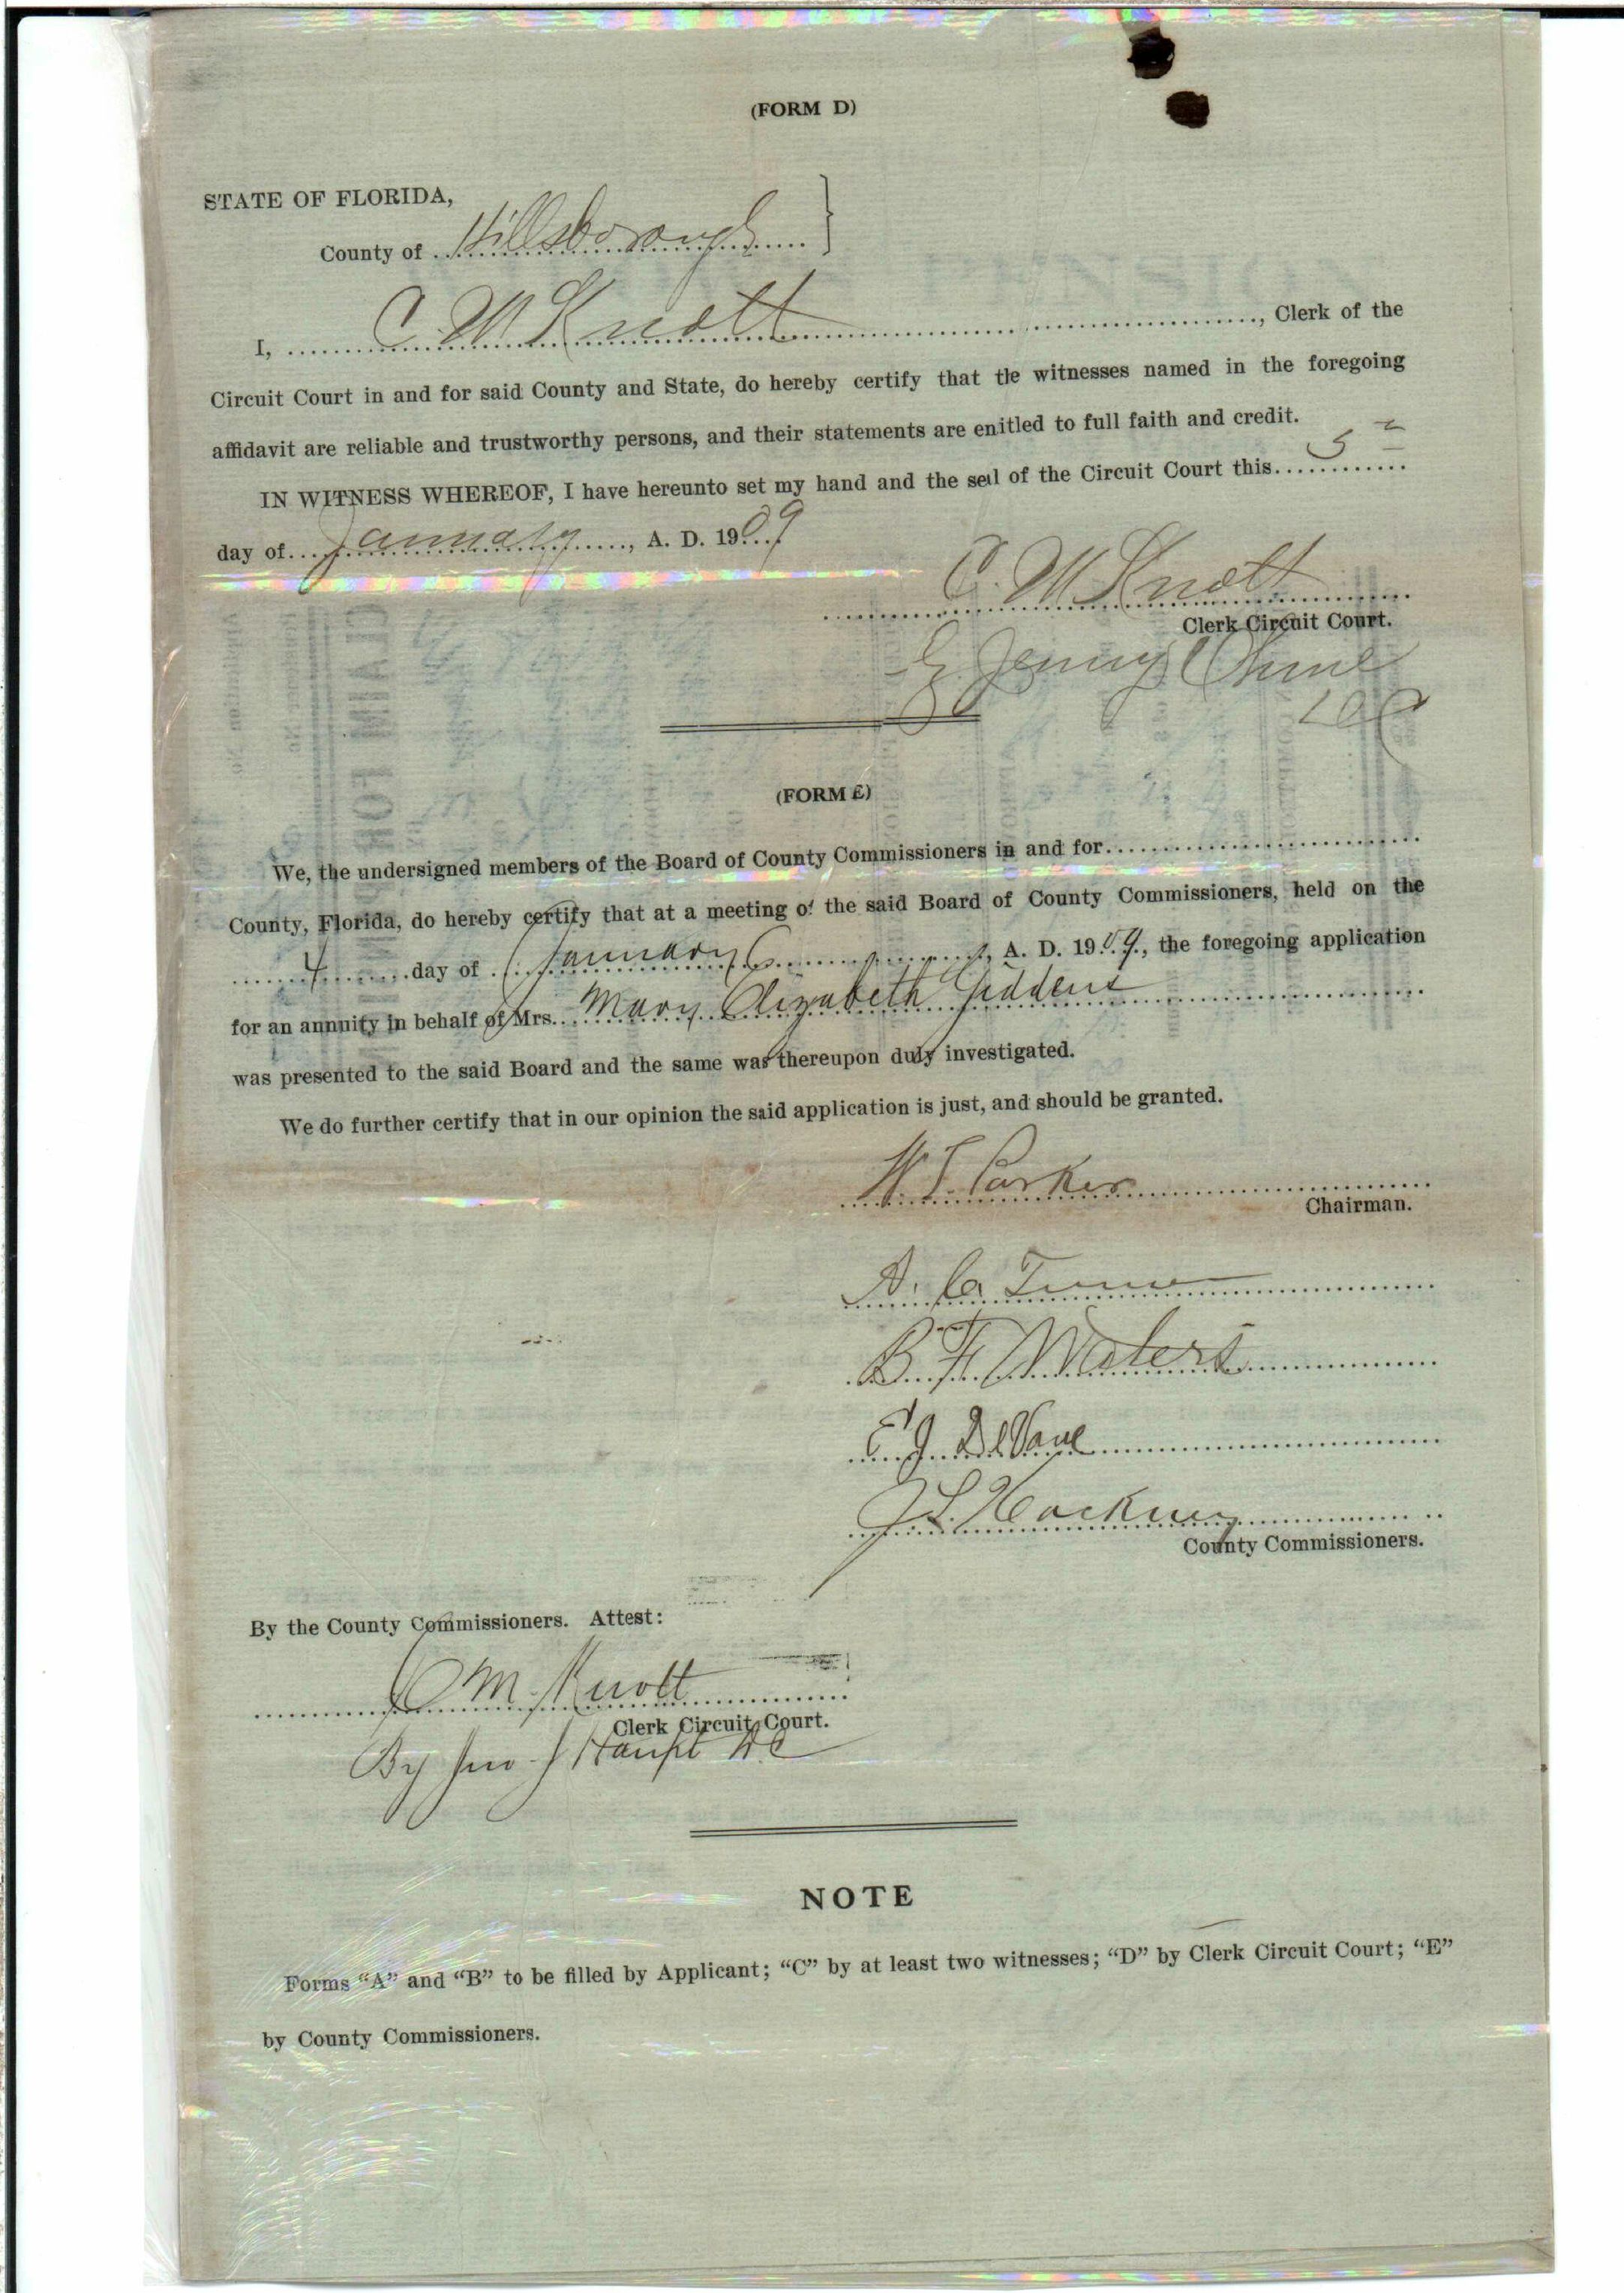 (FORM D)
STATE OF FLORIDA,
County of Hillsborough
I, C. M Knott, Clerk of the
Circuit Court in and for said County and State, do hereby certify that the witnesses named in the foregoing
affidavit are reliable and trustworthy persons, and their statements are enitled to full faith and credit.
IN WITNESS WHEREOF, I have hereunto set my hand and the seal of the Circuit Court this 5
day of January, A. D. 1909
C. M Knott
Clerk Circuit Court.
(FORM E)
We, the undersigned members of the Board of County Commissioners in and for
County, Florida, do hereby certify that at a meeting of the said Board of County Commissioners, held on the
4 day of January, A. D. 1909, the foregoing application
for an annuity in behalf of Mrs. Mary Elizabeth Giddens
was presented to the said Board and the same was thereupon duly investigated.
We do further certify that in our opinion the said application is just, and should be granted.
W. T. Parker
Chairman.
B. F. Waters
E J DeVane
J L Hackney
County Commissioners.
By the County Commissioners. Attest:
C M Knott
Clerk Circuit Court.
By Jno J Haupt DC
NOTE
Forms “A” and “B” to be filled by Applicant; “C” by at least two witnesses; “D” by Clerk Circuit Court; “E”
by County Commissioners.